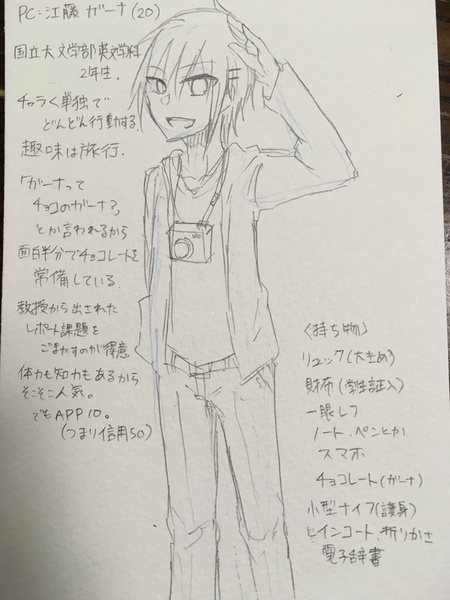 PC:江藤 ガーナ(20)
国立大文学部英文学科
2年生.
チャラく単独で
どんどん行動する.
趣味は旅行.
「ガーナって
チョコのガーナ?」
とか言われるから
面白半分でチョコレートを
常備している.
教授から出された
レポート課題を
ごまかすのが得意
体力も知力もあるから
そこそこ人気。
でもAPP10。
(つまり信用50)
<持ち物>
リュック(大きめ)
財布(学生証入)
一眼レフ
ノート、ペンとか
スマホ
チョコレート(ガーナ)
小型ナイフ(護身)
レインコート、折りかさ
電子辞書